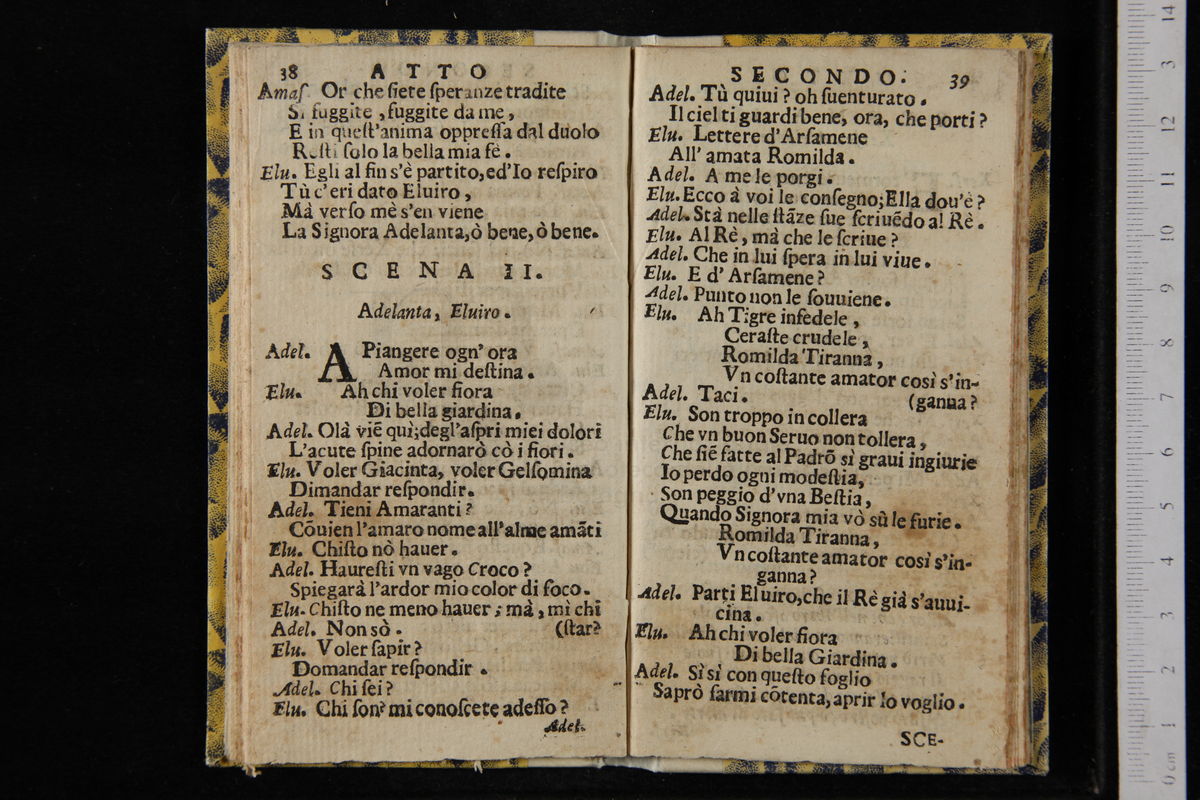 38 ATTO
Amaſ. Or che ſiete ſperanze tradite
Sì fuggite, fuggite da me,
E in queſt'anima oppreſſa dal duolo
Reſti ſolo la bella mia fè.
Elu. Egli al fin s'è partito, ed'Io reſpiro
Tù c'eri dato Eluiro,
Mà verſo mè s'en viene
La Signora Adelanta, ò bene, ò bene.
SCENA II.
Adelanta, Eluiro.
Adel. A Piangere ogn' ora
Amor mi deſtina.
Elu. Ah chi voler fiora
Di bella giardina.
Adel. Olà viẽ quì; degl'aſpri miei dolori
L'acute ſpine adornarò cò i fiori.
Elu. Voler Giacinta, voler Gelſomina
Dimandar reſpondir.
Adel. Tieni Amaranti?
Cõuien l'amaro nome all'alme amãti
Elu. Chiſto nò hauer.
Adel. Haureſti vn vago Croco?
Spiegarà l'ardor mio color di foco.
Elu. Chiſto ne meno hauer; mà, mì chi
Adel. Non sò. (ſtar?
Elu. Voler ſapir?
Domandar reſpondir.
Adel. Chi ſei?
Elu. Chi ſon? mi conoſcete adeſſo?
Adel.
SECONDO. 39
Adel. Tù quiui? oh ſuenturato.
Il ciel ti guardi bene, ora, che porti?
Elu. Lettere d'Arſamene
All' amata Romilda.
Adel. A me le porgi.
Elu. Ecco à voi le conſegno; Ella dou'è?
Adel. Stà nelle ſtãze ſue ſcriuẽdo al Rè.
Elu. Al Rè, mà che le ſcriue?
Adel. Che in lui ſpera in lui viue.
Elu. E d' Arſamene?
Adel. Punto non le ſouuiene.
Elu. Ah Tigre infedele,
Ceraſte crudele,
Romilda Tiranna,
Vn coſtante amator così s'in-
Adel. Taci. (ganna?
Elu. Son troppo in collera
Che vn buon Seruo non tollera,
Che ſiẽ fatte al Padrõ sì graui ingiurie
Io perdo ogni modeſtia,
Son peggio d'vna Beſtia,
Quando Signora mia vò sù le furie.
Romilda Tiranna,
Vn coſtante amator così s'in-
ganna?
Adel. Parti Eluiro, che il Rè già s'auui-
cina.
Elu. Ah chi voler fiora
Di bella Giardina.
Adel. Sì sì con queſto foglio
Saprò farmi cõtenta, aprir lo voglio.
SCE-